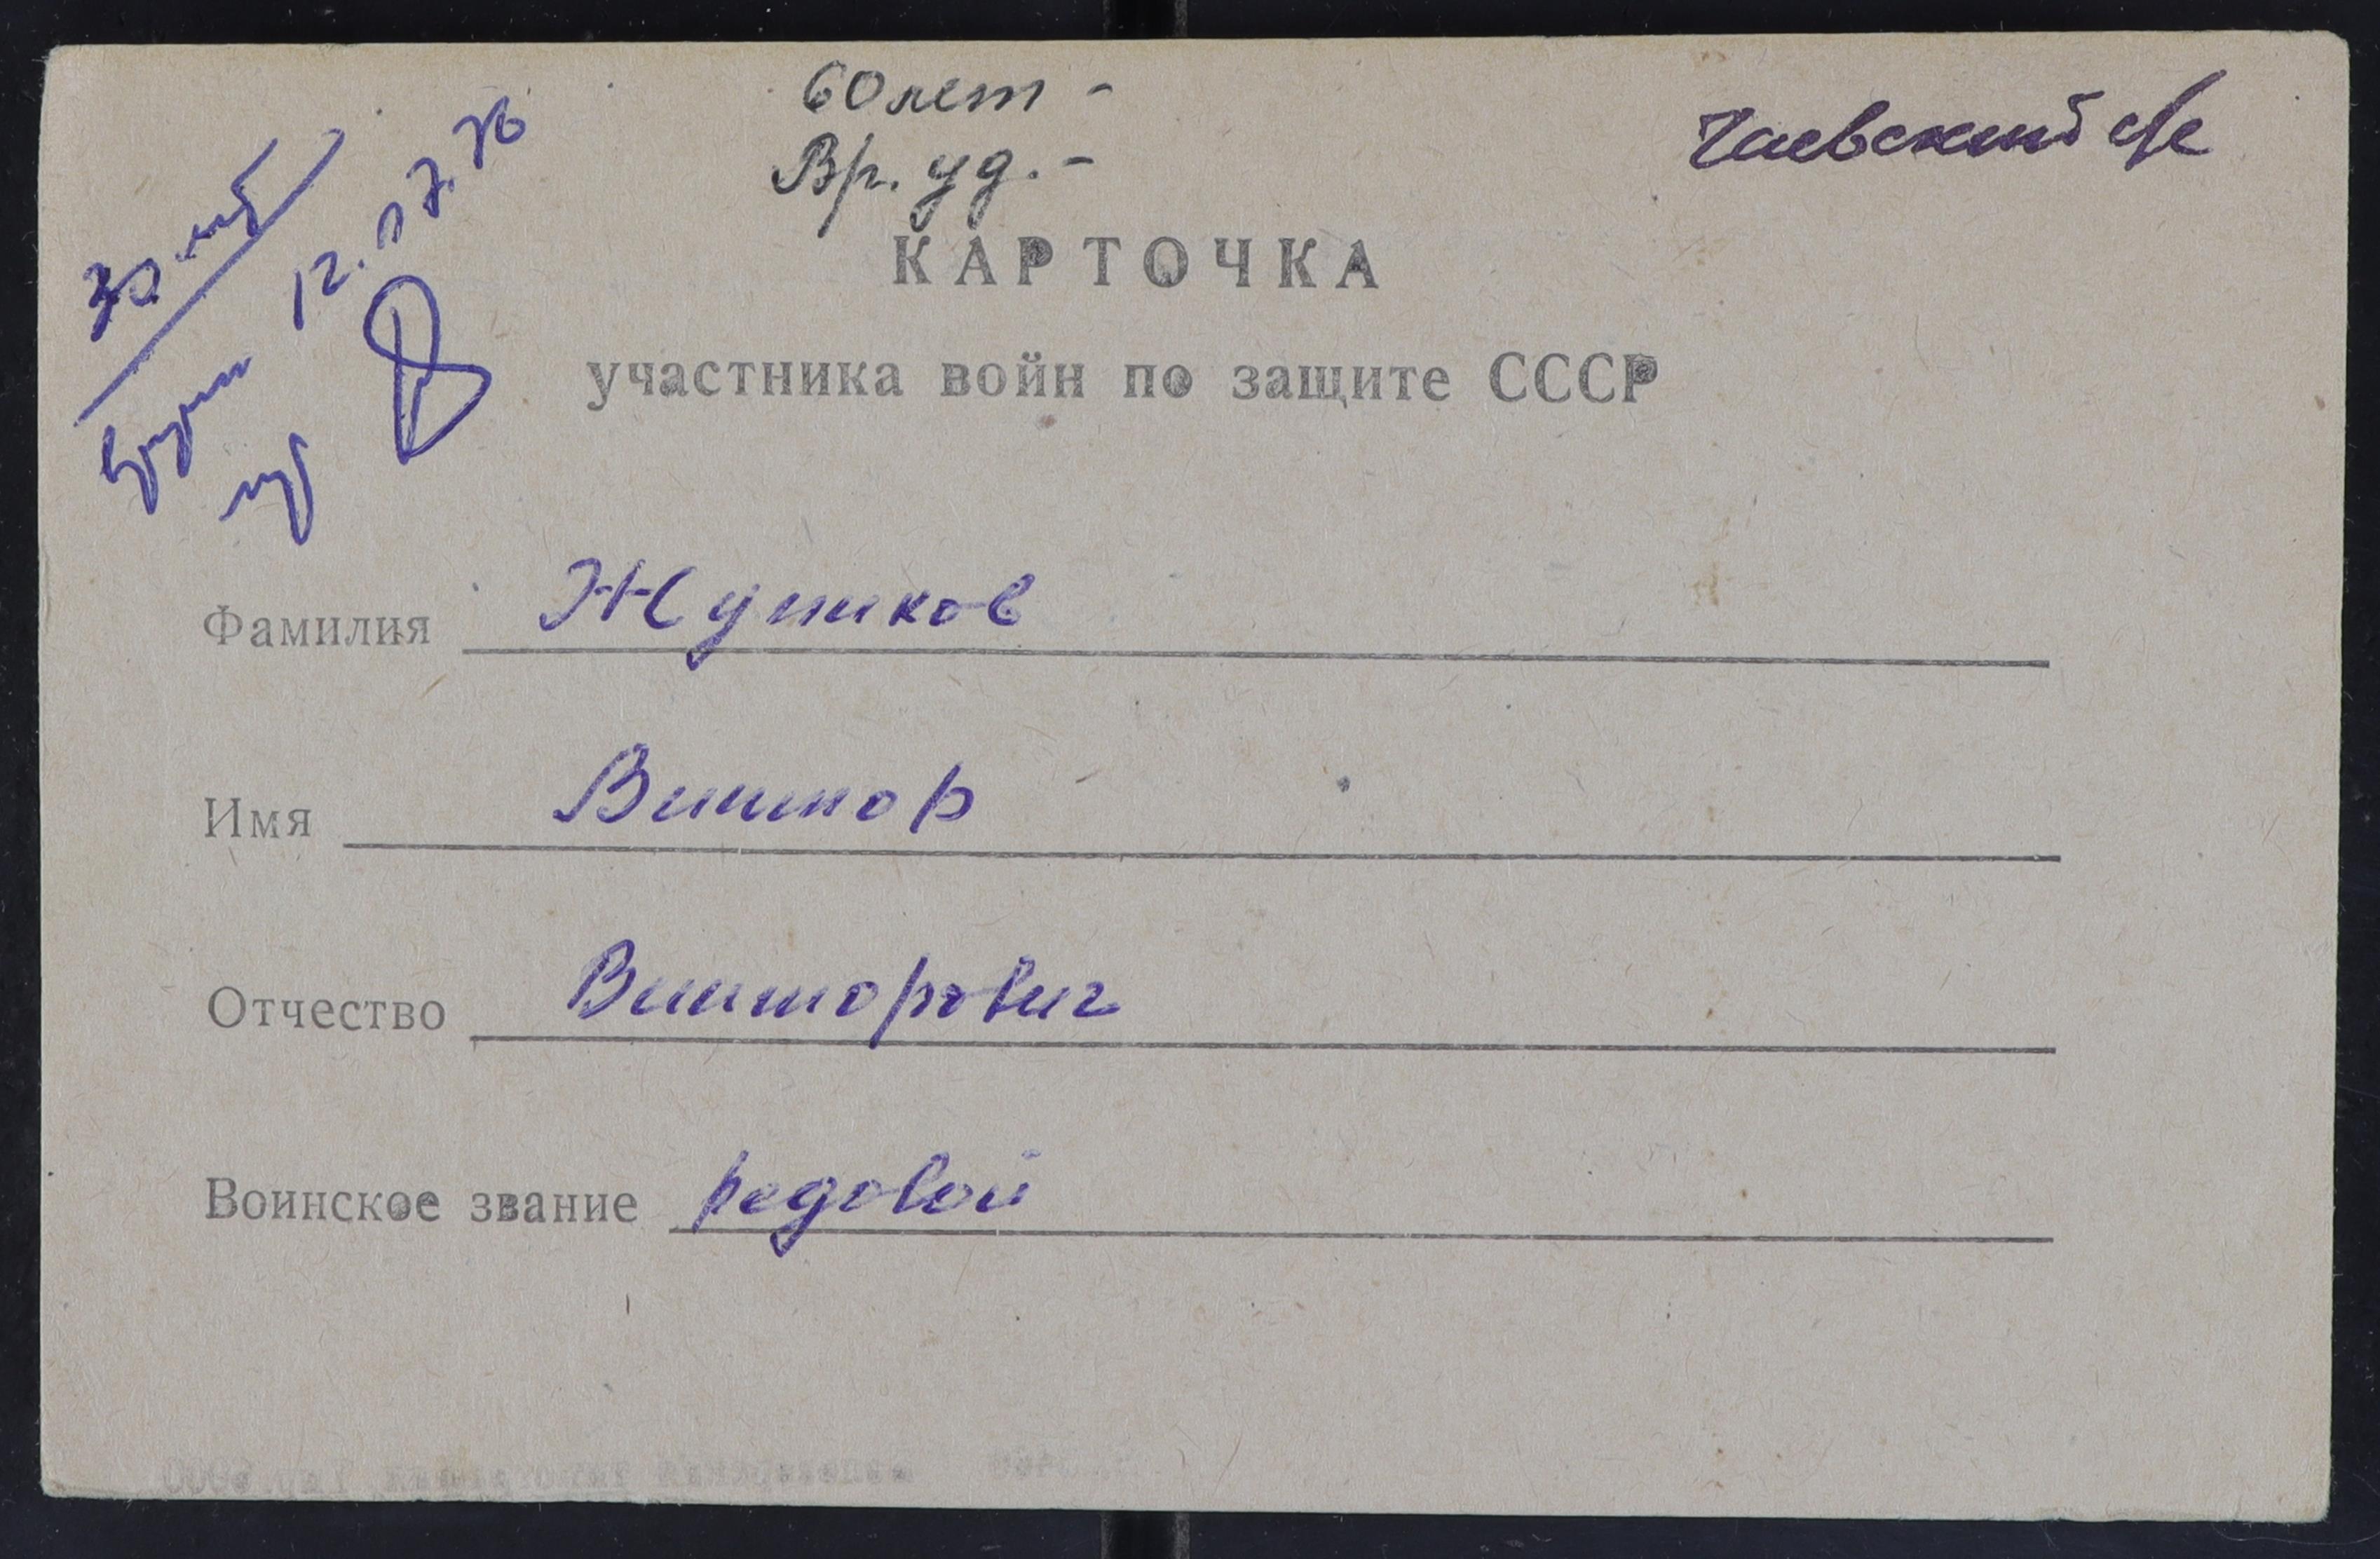 60 лет -
Вр. уд. -
12.07.76
КАРТОЧКА
участника войн по защите СССР
Фамилия Жутиков
Имя Виктор
Отчество Викторович
Воинское звание редовой